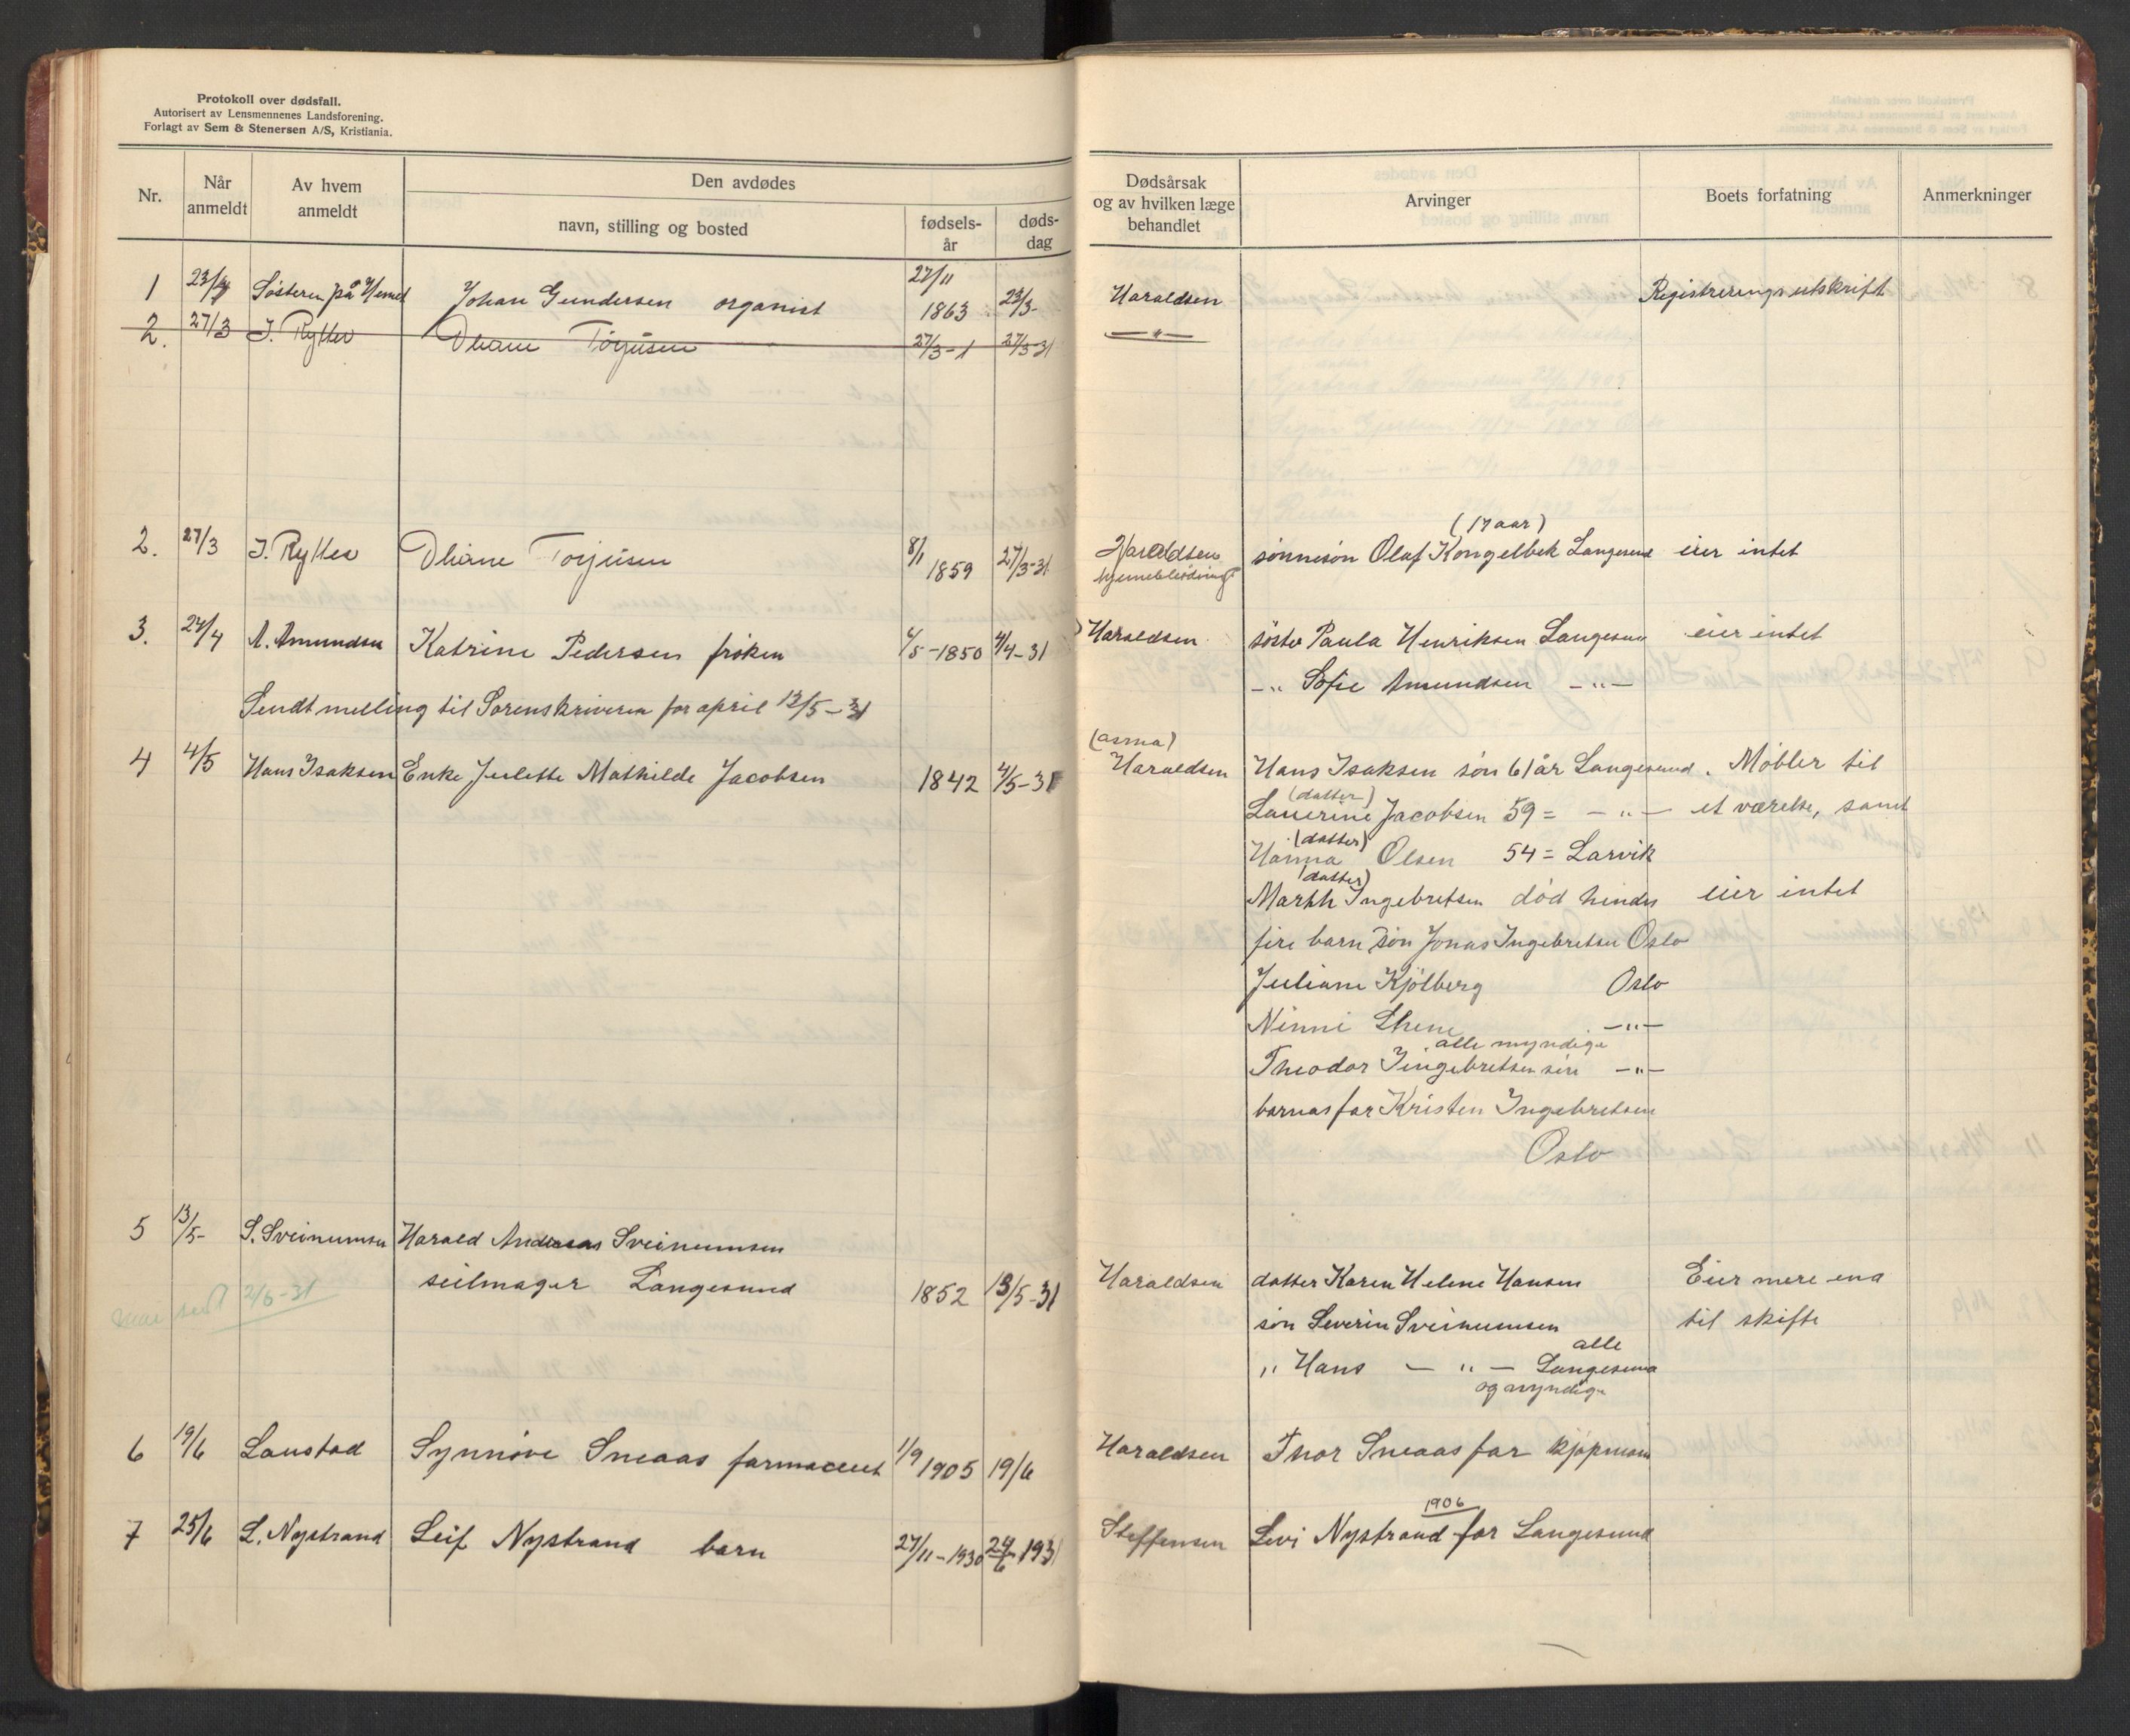 Protokoll over dødsfall.
Autorisert av Lensmennenes Landsforening.
Forlagt av Sem & Stenersen A/S, Kristiania.
Nr.
Når anmeldt
Av hvem anmeldt
Den avdødes
navn, stilling og bosted
fødsels-år
døds-dag
Dødsårsak og av hvilken læge behandlet
Arvinger
Boets forfatning
Anmerkninger
1 Søsteren på Johan Gundersen organist 27/11 1863 23/3- Haraldsen Registreringsutskrift
2. 27/3 J. Rytter Torjusen 27/3-1 27/3-31 — " —
(17 aar)
2. 27/3 J. Rytter Torjusen 8/1 1859 27/3-31 Haraldsen sønnesøn Olaf Kongelbek Langesund eier intet
hjerneblødning
3. 24/4 A. Amundsen Katrine Pedersen frøken 4/5-1850 4/4-31 Haraldsen søster Paula Henriksen Langesund eier intet
-" Sofie Amundsen -"-
Sendt melling til Sorenskriveren for april 12/5-31
(asma)
4 4/5 Hans Isaksen Enke Julette Mathilde Jacobsen 1842 4/5-31 Haraldsen Hans Isaksen søn 61 år Langesund. Møbler til
(datter)
Laurine Jacobsen 59 = -"- et værelse, samt
(datter)
Hanna Olsen 54 = Larvik
(datter)
Marth Ingebretsen død hindes eier intet
fire barn søn Jonas Ingebretsen Oslo
Juliane Kjølberg Oslo
Ninni -"-
alle myndige
Theodor Ingebretsen søn -"-
barnas far Kristen Ingebretsen
Oslo
5 13/5- S. Sveinumsen Harald Andreas Sveinumsen
seilmager Langesund 1852 13/5-31 Haraldsen datter Karen Helene Hansen Eier mere end
mai sendt 2/6-31
søn Severin Sveinumsen til skifte
alle
" Hans — " — Langesund
og myndige
6 19/6 Laustad Synnøve Sneaas farmaceut 1/9 1905 19/6 Haraldsen Thor Sneaas far kjøpmann
1906
7 25/6 L. Nystrand Leif Nystrand barn 27/11-1930 24/6 1931 Steffensen Levi Nystrand far Langesund